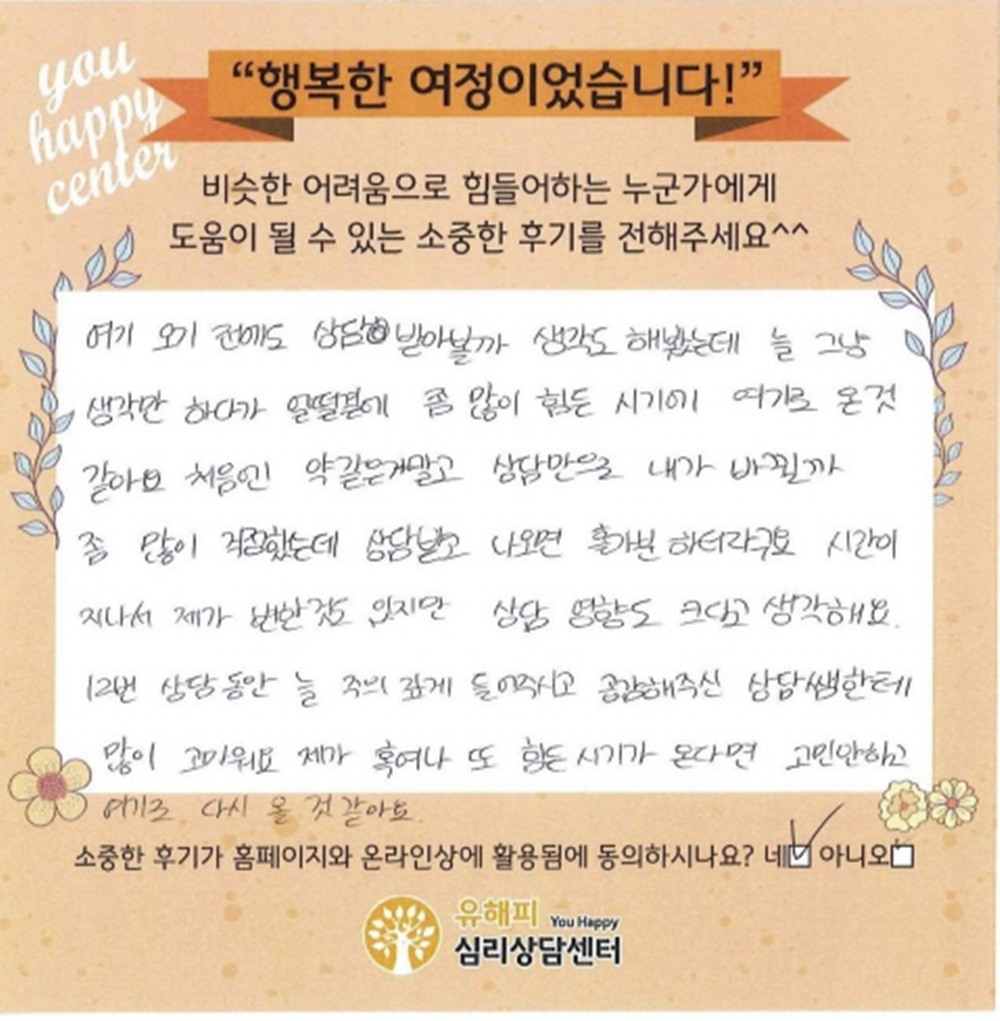 you
happy
center
“행복한 여정이었습니다!”
비슷한 어려움으로 힘들어하는 누군가에게
도움이 될 수 있는 소중한 후기를 전해주세요^^
여기 오기 전에도 상담 받아볼까 생각도 해봤는데 늘 그냥
생각만 하다가 얼떨결에 좀 많이 힘든 시기에 여기로 온것
같아요 처음엔 약같은거말고 상담만으로 내가 바뀔까
좀 많이 걱정했는데 상담받고 나오면 홀가분 하더라구요 시간이
지나서 제가 변한것도 있지만 상담 영향도 크다고 생각해요.
12번 상담동안 늘 주의 깊게 들어주시고 공감해주신 상담쌤한테
많이 고마워요 제가 혹여나 또 힘든 시기가 온다면 고민안하고
여기로 다시 올 것 같아요.
소중한 후기가 홈페이지와 온라인상에 활용됨에 동의하시나요? 네☑ 아니오□
유해피 You Happy
심리상담센터